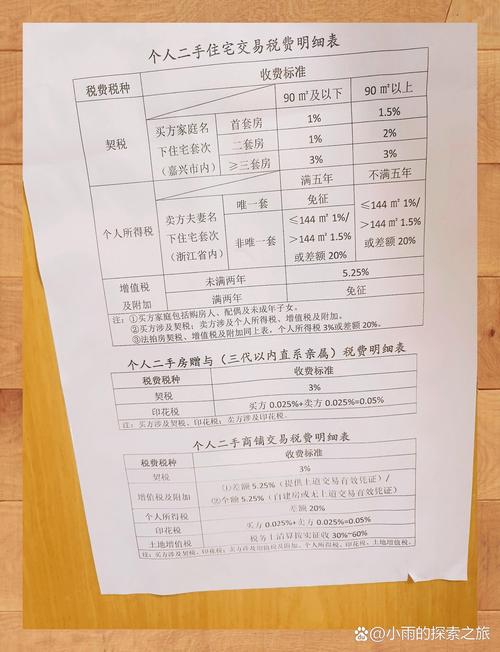 个人二手住宅交易税费明细表
税费税种 收费标准
90㎡及以下 90㎡以上
契税 买方家庭名下住宅套次（嘉兴市内） 首套房 1% 1.5%
二套房 1% 2%
≥三套房 3% 3%
满五年 不满五年
个人所得税 卖方夫妻名下住宅套次（浙江省内） 唯一套 免征 ≤144㎡1%/>144㎡1.5%或差额20%
非唯一套 ≤144㎡1%/>144㎡1.5%或差额20%
增值税及附加 未满两年 5.25%
满两年 免征
注：①买方家庭包括购房人、配偶及未成年子女。
②买方涉及契税；卖方涉及个人所得税、增值税及附加。
③法拍房契税、增值税及附加同上表，个人所得税3%或差额20%。
个人二手房赠与（三代以内直系亲属）税费明细表
税费税种 收费标准
契税 3%
印花税 买方0.025%+卖方0.025%=0.05%
注：买方涉及契税、印花税；卖方涉及印花税。
个人二手商铺交易税费明细表
税费税种 收费标准
契税 3%
增值税及附加 ①差额5.25%（提供上道交易有效凭证）/
②全额5.25%（自建房或无上道交易有效凭证）
个人所得税 差额20%
印花税 买方0.025%+卖方0.025%=0.05%
土地增值税 税务上清算按实征收30%~60%
注：买方涉及契税、印花税；卖方涉及增值税及附加、个人所得税、印花税、土地增值税。
@小雨的探索之旅